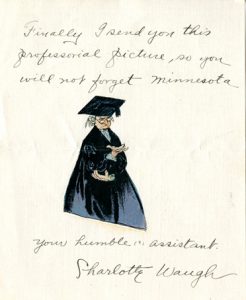 Finally I send you this
professorial picture, so you
will not forget Minnesota.
Your humble (?) assistant.
Charlotte Waugh